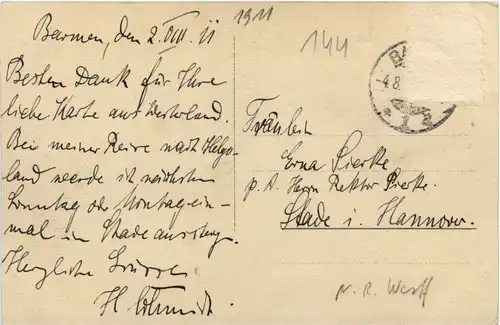 1911
144
Barmen, den 2. VIII. 11
Besten Dank für Ihre
liebe Karte aus Westerland.
Bei meiner Reise nach Helgo-
land werde ich nächsten
Sonntag oder Montag ein-
mal in Stade aussteig.
Herzliche Grüsse
H. Schmidt.
BA
4.8.
Fräulein
Erna Sierke
p. A. Herrn Rektor Sierke.
Stade i. Hannover.